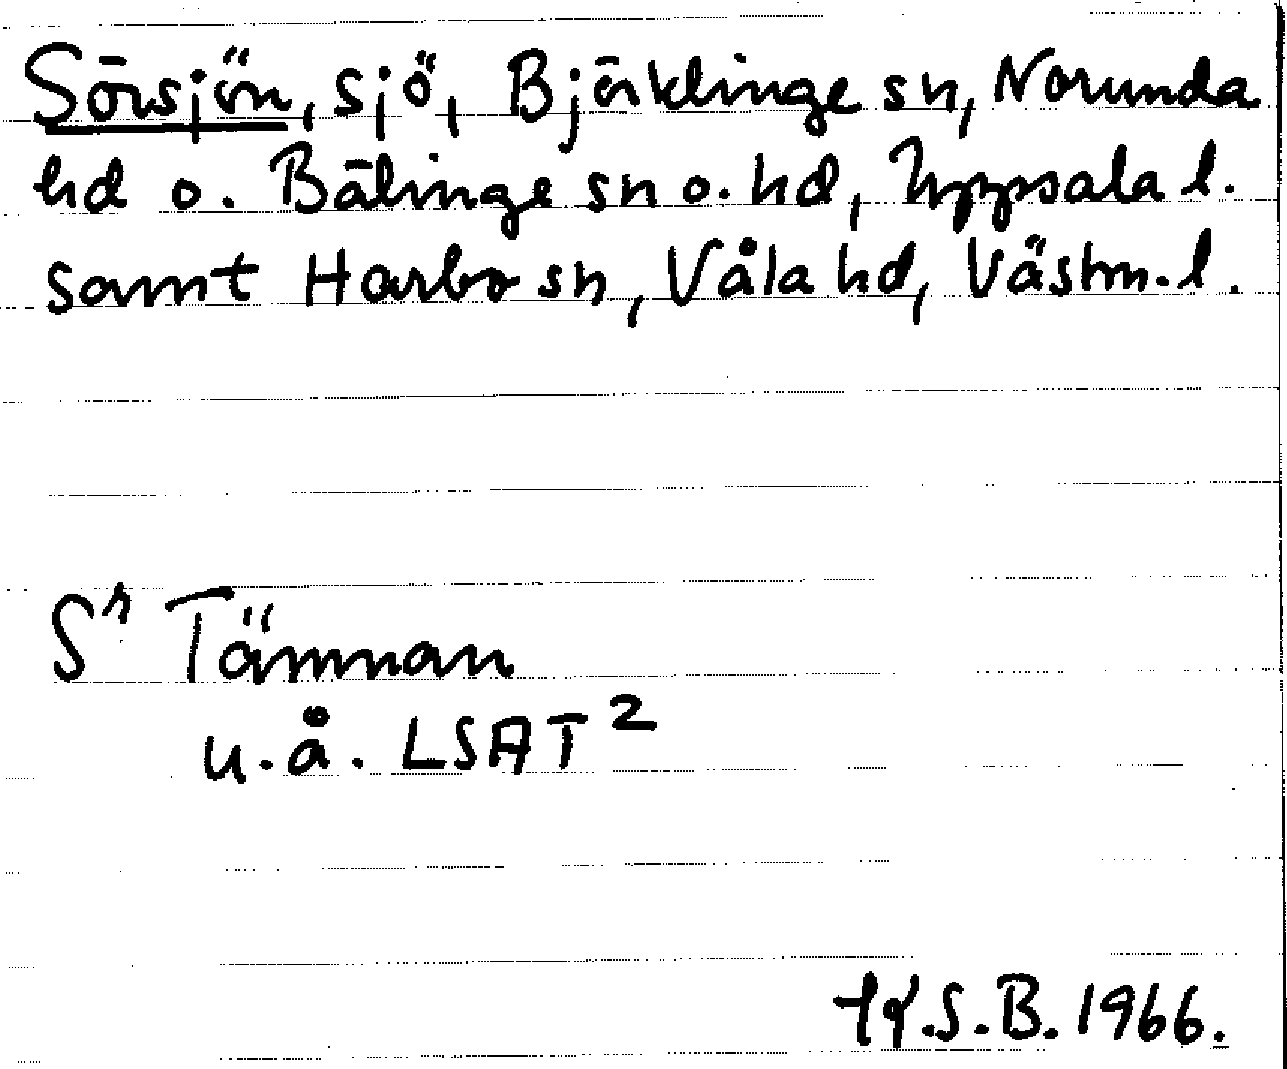 Sörsjön, sjö, Björklinge sn, Norunda
hd o. Bälinge sn o. hd, Uppsala l.
samt Harbo sn, Våla hd, Västm. l.
Se Tämnan
u.å. LSAT 2
S.B. 1966.